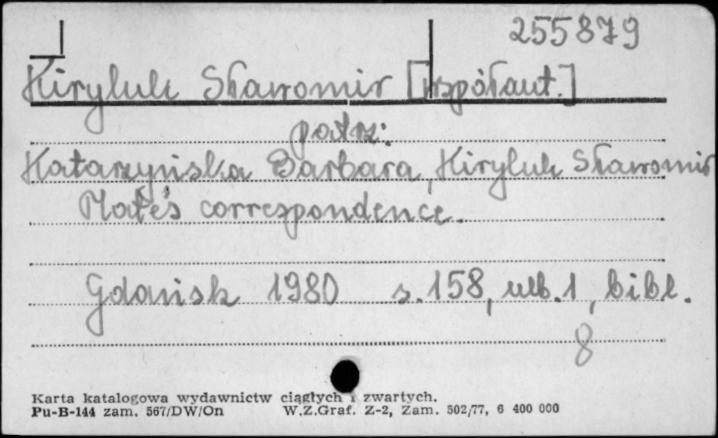 255879
Kiryluk Sławomir [współaut.]
patrz:
Katarzyńska Barbara, Kiryluk Sławomir
Mate's correspondence.
Gdańsk 1980 s. 158, nlb. 1, bibl.
8
Karta katalogowa wydawnictw ciągłych i zwartych.
Pu-B-144 zam. 567/DW/On W.Z.Graf. Z-2, Zam. 502/77, 6 400 000